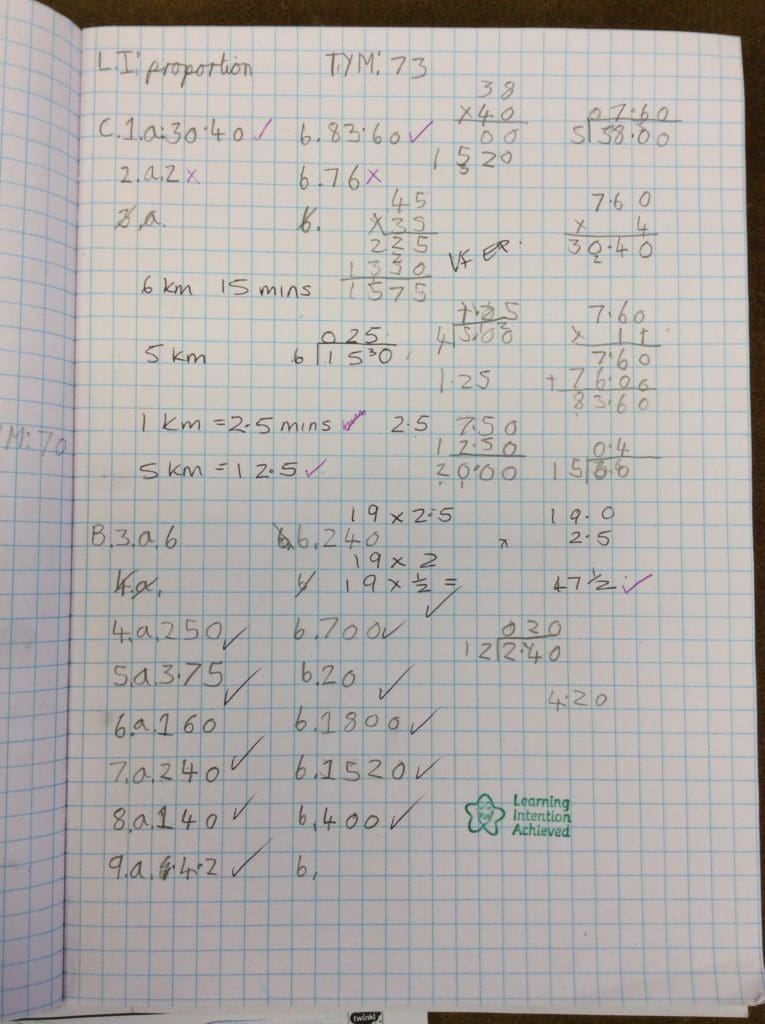 L.I: proportion T.Y.M: 73
38
C.1.a.30.40 ✓ b.83.60 ✓ ×40 07.60
00 5 38.00
1520
2.a.2 × b.76 ×
45 7.60
3.a. b. ×35 × 4
225 30.40
1350
6 km 15 mins 1575
1.25 7.60
025 4 5.00 × 11
5 km 6 1530 7.60
1.25 + 76.00
83.60
1 km = 2.5 mins 2.5 7.50
12.50 0.4
5 km = 12.5 ✓ 20.00 15
M:70
19 × 2.5 19.0
B.3.a.6 b.240 × 2.5
19 × 2
4.a. b 19 × ½ = 47 ½ ✓
4.a.250 ✓ b.700 ✓ 020
12 2.40
5.a.3.75 b.20 ✓
4.20
6.a.160 b.1800 ✓
7.a.240 ✓ b.1520 ✓
8.a.140 ✓ b.400 ✓
Learning
Intention
Achieved
9.a.4.2 ✓ b.
twinkl